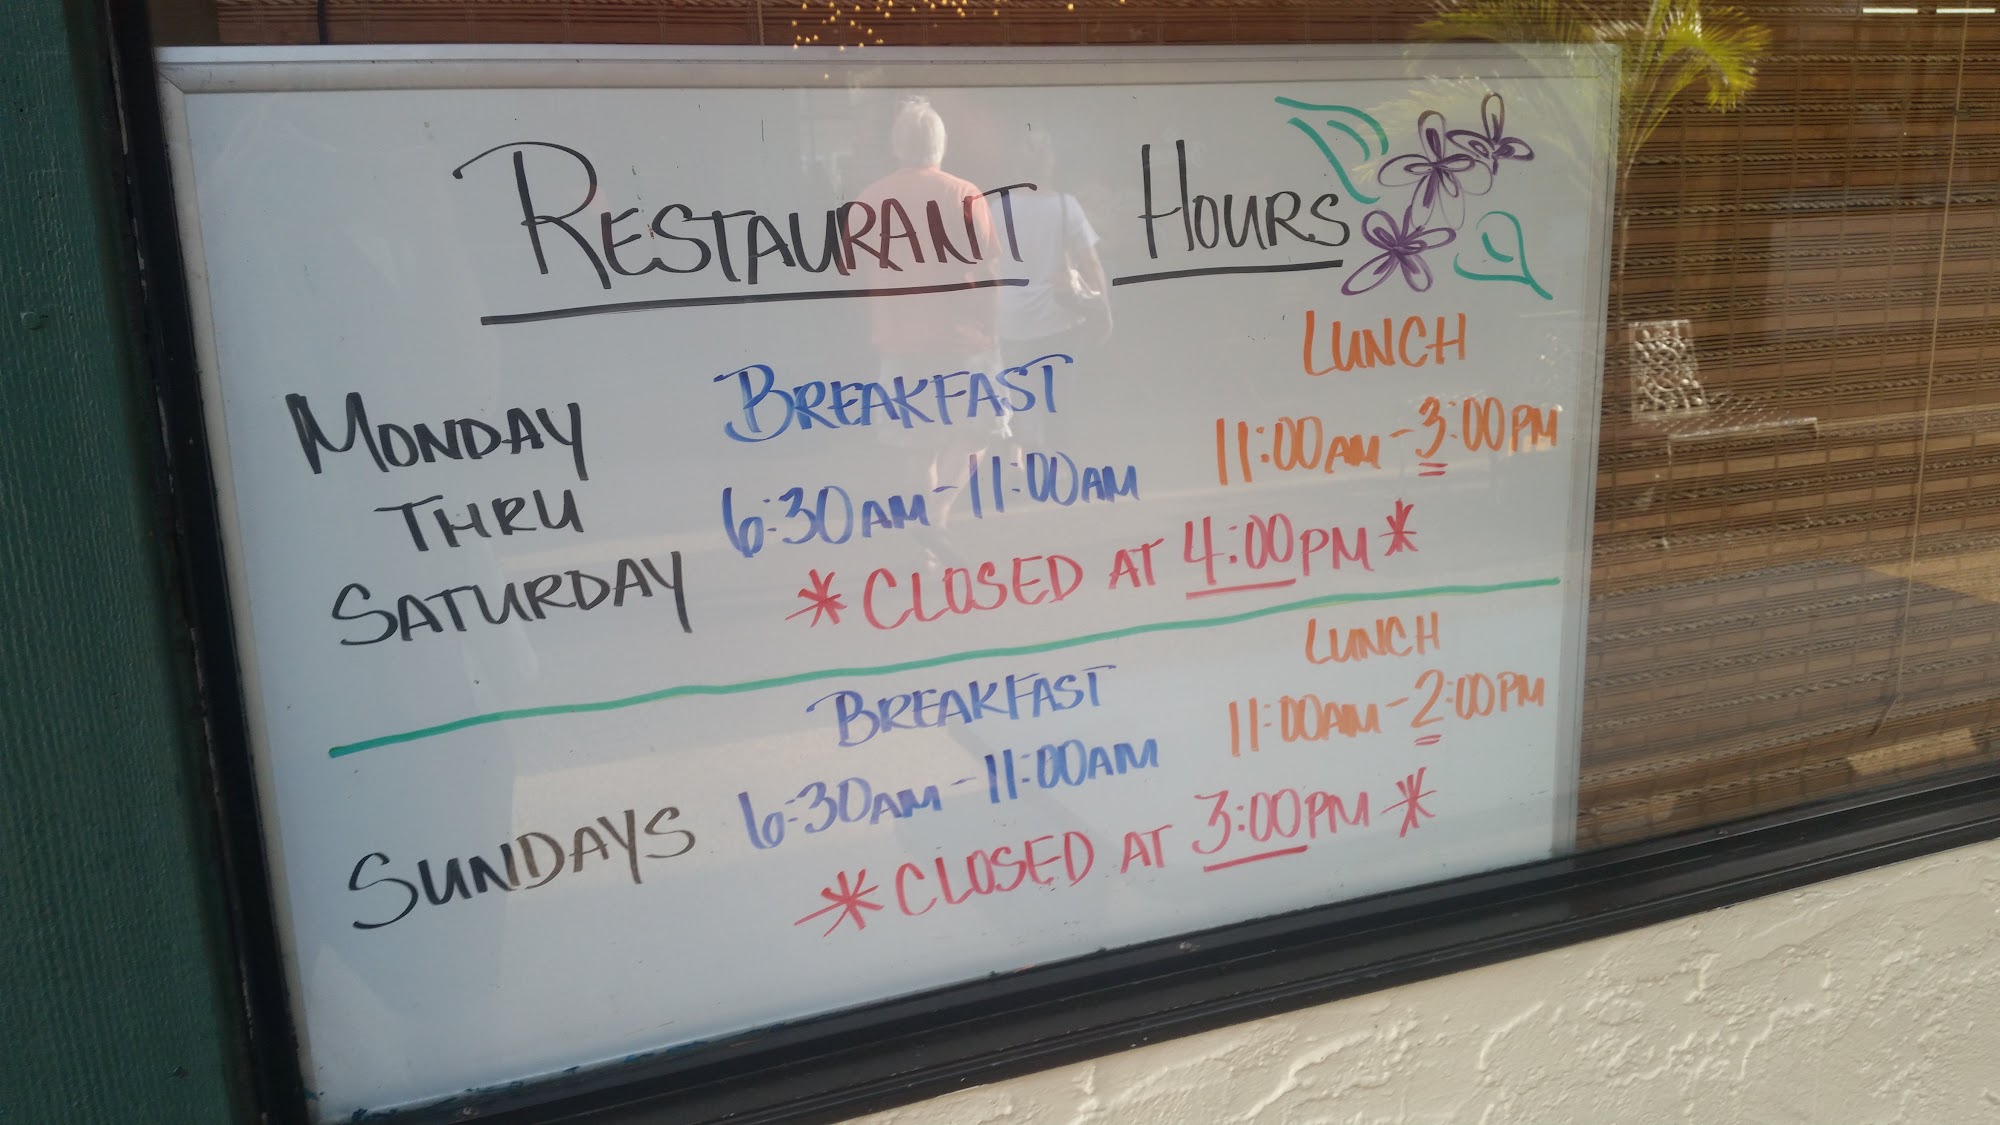 RESTAURANT HOURS
MONDAY
THRU
SATURDAY
BREAKFAST
6:30AM-11:00AM
LUNCH
11:00AM-3:00PM
*CLOSED AT 4:00PM*
SUNDAYS
BREAKFAST
6:30AM-11:00AM
LUNCH
11:00AM-2:00PM
*CLOSED AT 3:00PM*